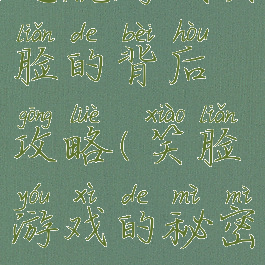 liǎn de bèi hòu
脸的背后
gōng lüè xiào liǎn
攻略(笑脸
yóu xì de mì mì
游戏的秘密